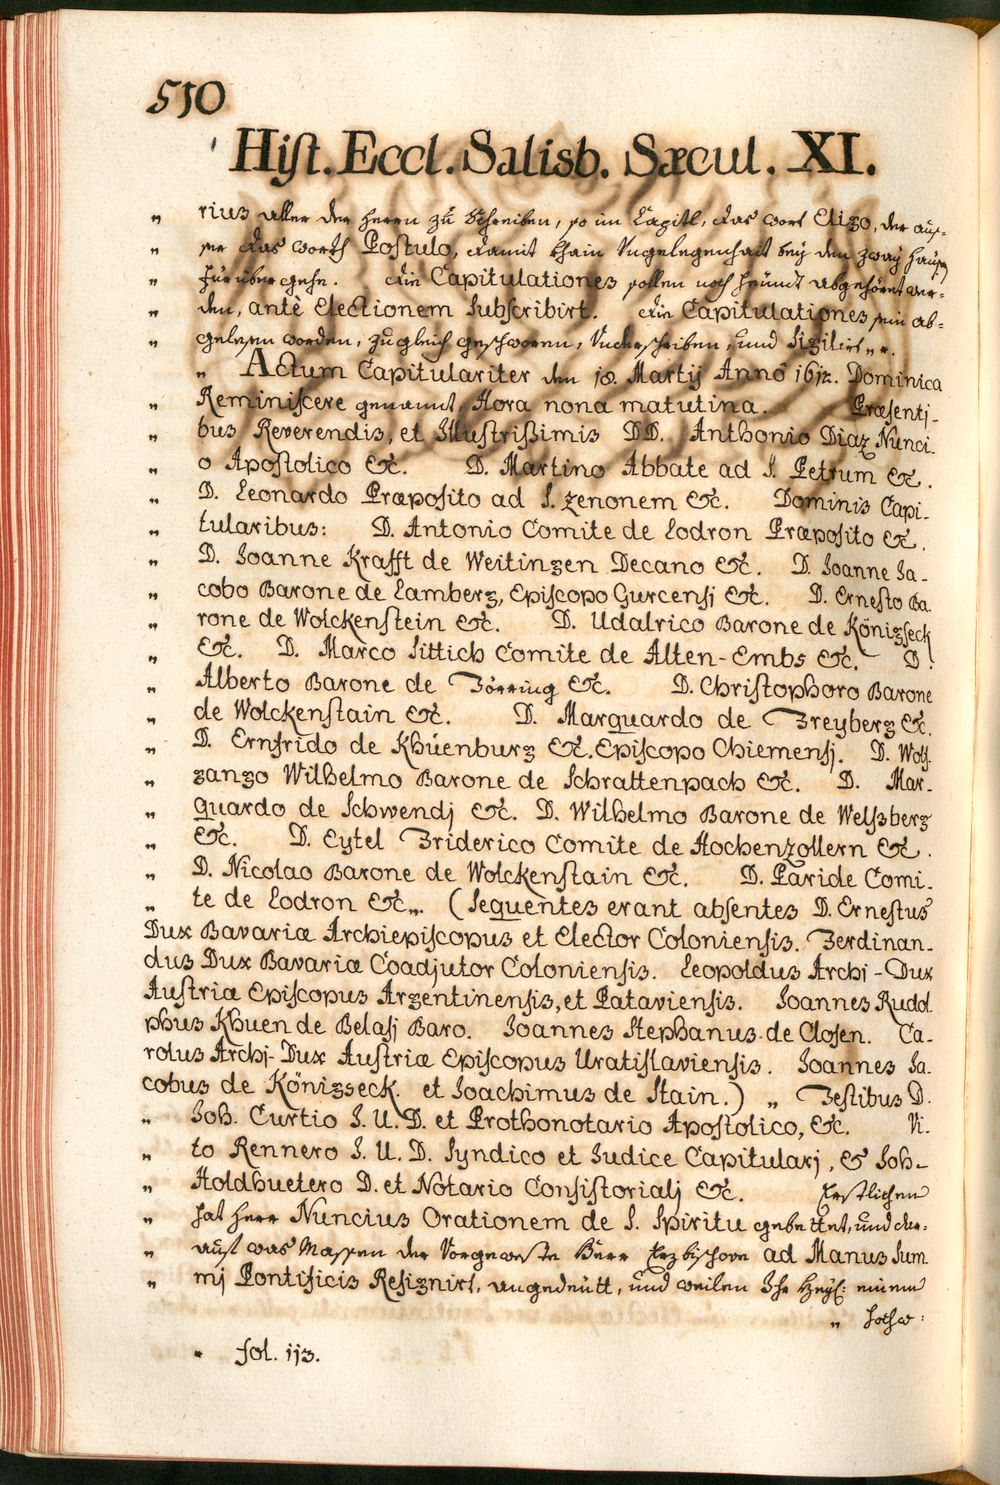 510
Hist. Eccl. Salisb. Sæcul. XI.
„ rius aller der Herrn zu Schreiben, so im Capitl, das wort Eligo, der auß-
„ ser das worth Postulo, damit khain Ungelegenhait bey den zway
„ fürüber gehe. die Capitulationes sollen noch heündt abgehöret wer-
„ den, antè Electionem Subscribirt. die Capitulationes sein ab-
„ gelesen worden, zugleich geschworen, Underschriben, und Sigilirt „.
„ Actum Capitulariter den 18. Martij Anno 1612. Dominica
„ Reminiscere genannt, Hora nona matutina. Præsentj-
„ bus Reverendis, et Illustrißimis DD. Anthonio Diaz Nunci-
„ o Apostolico &c. D. Martino Abbate ad S. Petrum &c.
„ D. Leonardo Præposito ad S. Zenonem &c. Dominis Capi-
„ tularibus: D. Antonio Comite de Lodron Præposito &c.
„ D. Joanne Krafft de Weitingen Decano &c. D. Joanne Ja-
„ cobo Barone de Lamberg, Episcopo Gurcensj &c. D. Ernesto Ba-
„ rone de Wolckenstein &c. D. Udalrico Barone de Königseck
„ &c. D. Marco Sittich Comite de Alten-Embs &c. D.
„ Alberto Barone de Törring &c. D. Christophoro Barone
„ de Wolckenstain &c. D. Marquardo de Freyberg &c.
„ D. Ernfrido de Khüenburg &c. Episcopo Chiemensj. D. Wolf-
„ gango Wilhelmo Barone de Schrattenpach &c. D. Mar-
„ quardo de Schwendj &c. D. Wilhelmo Barone de Welsberg
„ &c. D. Eytel Friderico Comite de Hochenzollern &c.
„ D. Nicolao Barone de Wolckenstain &c. D. Paride Comi-
„ te de Lodron &c„. (Sequentes erant absentes D. Ernestus
Dux Bavariæ Archiepiscopus et Elector Coloniensis. Ferdinan-
dus Dux Bavariæ Coadjutor Coloniensis. Leopoldus Archj-Dux
Austriæ Episcopus Argentinensis, et Pataviensis. Joannes Rudol
phus Khuen de Belasj Baro. Joannes Stephanus de Closen. Ca-
rolus Archj-Dux Austriæ Episcopus Uratislaviensis. Joannes Ja-
cobus de Königseck. et Joachimus de Stain.) „ Testibus D.
„ Joh. Curtio J. U. D. et Prothonotario Apostolico, &c. Vi-
„ to Rennero J. U. D. Syndico et Judice Capitularj, & Joh-
„ Holdhuetero D. et Notario Consistorialj &c. Erstlichen
„ hat Herr Nuncius Orationem de S. Spiritu gebettet, und dar-
„ auf was Massen der Vorgeweste Herr Erzbischove ad Manus Sum
„ mj Pontificis Resignirt, angedeütt, und weilen Ihr Heyl: einem
„ hochw:
* fol. 113.